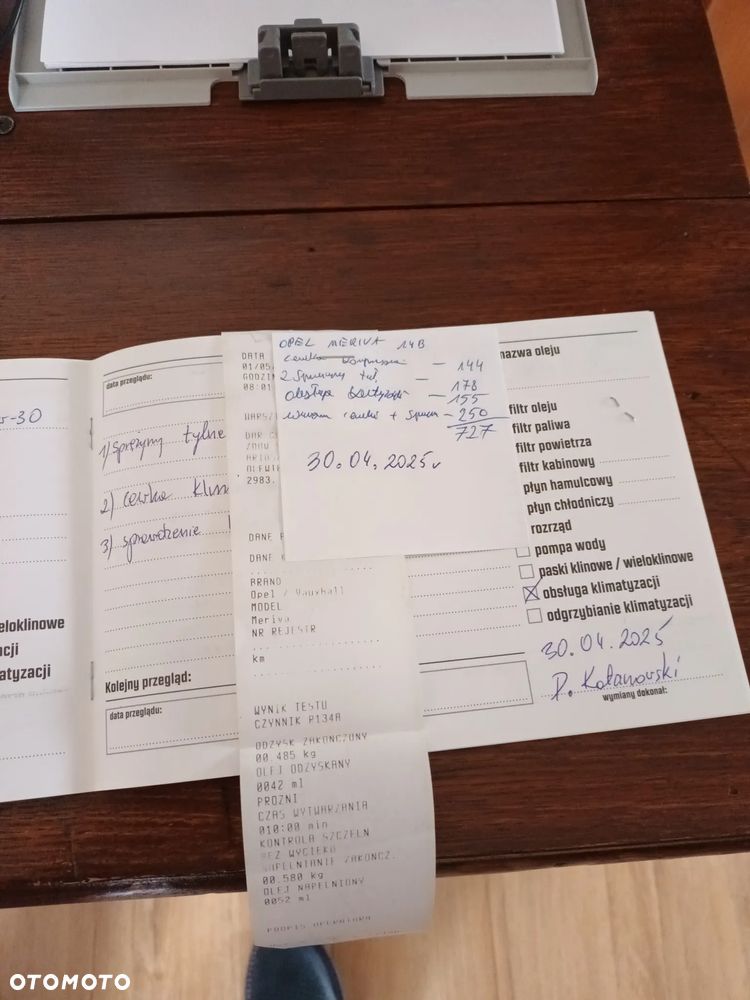 OPEL MERIVA 14B
cewka
- 144
2 Sprężyny tył. - 178
obsługa klimatyzacji - 155
wymiana cewki + spręż - 250
727
30.04.2025r
-30
eloklinowe
cji
atyzacji
data przeglądu:
1) Sprężyny tylne
2) cewka klim
3) sprawdzenie
Kolejny przegląd:
data przeglądu:
DATA
01/05
GODZIN
08:01
WARSZ
OLEWIE
2983.
DANE
DANE
BRAND
Opel / Vauxhall
MODEL
Meriva
NR REJESTR
km
WYNIK TESTU
CZYNNIK R134A
ODZYSK ZAKOŃCZONY
00.485 kg
OLEJ ODZYSKANY
0042 ml
PROZNI
CZAS WYTWARZANIA
010:00 min
KONTROLA SZCZELN
BEZ WYCIEKU
NAPELNIANIE ZAKONCZ.
00.580 kg
OLEJ NAPELNIONY
0052 ml
PODPIS OPERATORA
nazwa oleju
filtr oleju
filtr paliwa
filtr powietrza
filtr kabinowy
płyn hamulcowy
płyn chłodniczy
rozrząd
pompa wody
paski klinowe / wieloklinowe
obsługa klimatyzacji
odgrzybianie klimatyzacji
30.04.2025
P. Kotanowski
wymiany dokonał:
OTOMOTO